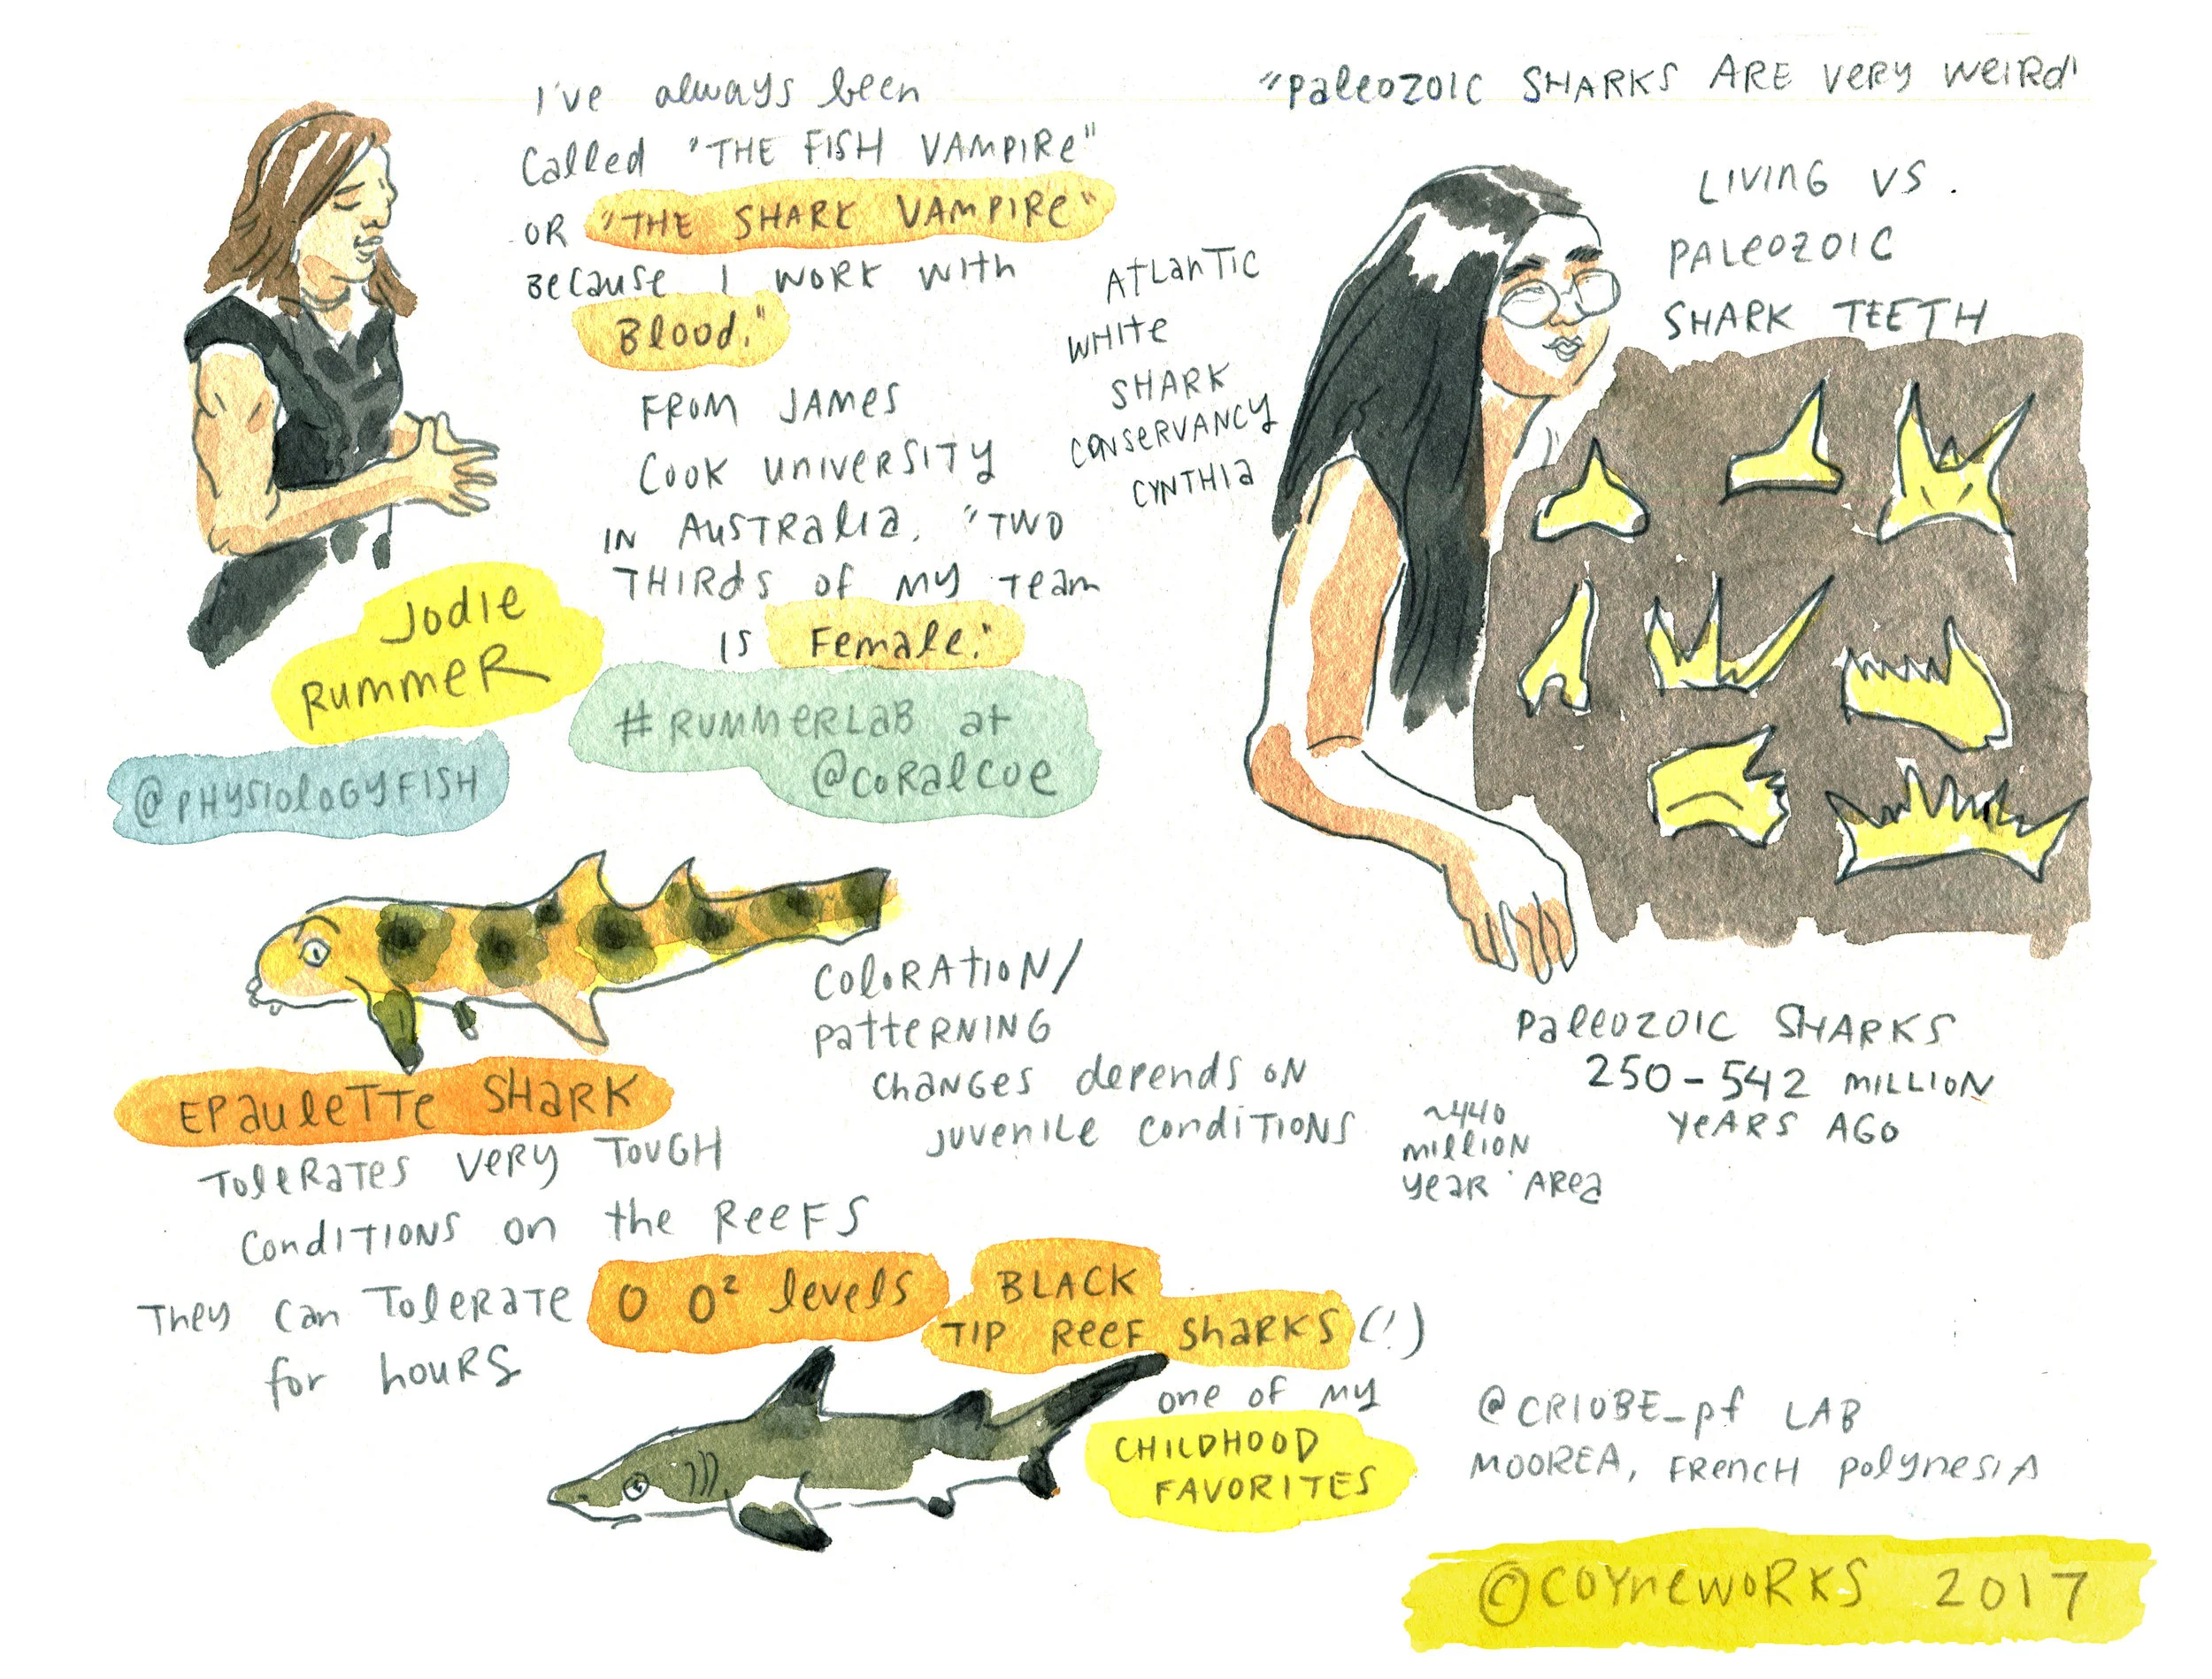 I've always been
called "THE FISH VAMPIRE"
OR "THE SHARK VAMPIRE"
Because I WORK WITH
Blood."
FROM JAMES
COOK UNIVERSITY
IN AUSTRALIA. "TWO
THIRDS of MY Team
IS Female."
Jodie
RUMMER
@PHYSIOLOGYFISH
#RUMMERLAB at
@CORALCOE
COLORATION/
PATTERNING
CHANGES depends ON
JUVENILE CONDITIONS
EPAULETTE SHARK
TOLERATES VERY TOUGH
CONDITIONS on the REEFS
They can TOLERATE 0 O² levels
for hours
BLACK
TIP REEF SHARKS (!)
one of my
CHILDHOOD
FAVORITES
"PALEOZOIC SHARKS ARE VERY WEIRD"
LIVING VS.
PALEOZOIC
SHARK TEETH
ATLANTIC
WHITE
SHARK
CONSERVANCY
CYNTHIA
PALEOZOIC SHARKS
250-542 MILLION
YEARS AGO
~440
MILLION
YEAR AREA
@CRIOBE_pf LAB
MOOREA, FRENCH POLYNESIA
©COYNEWORKS 2017